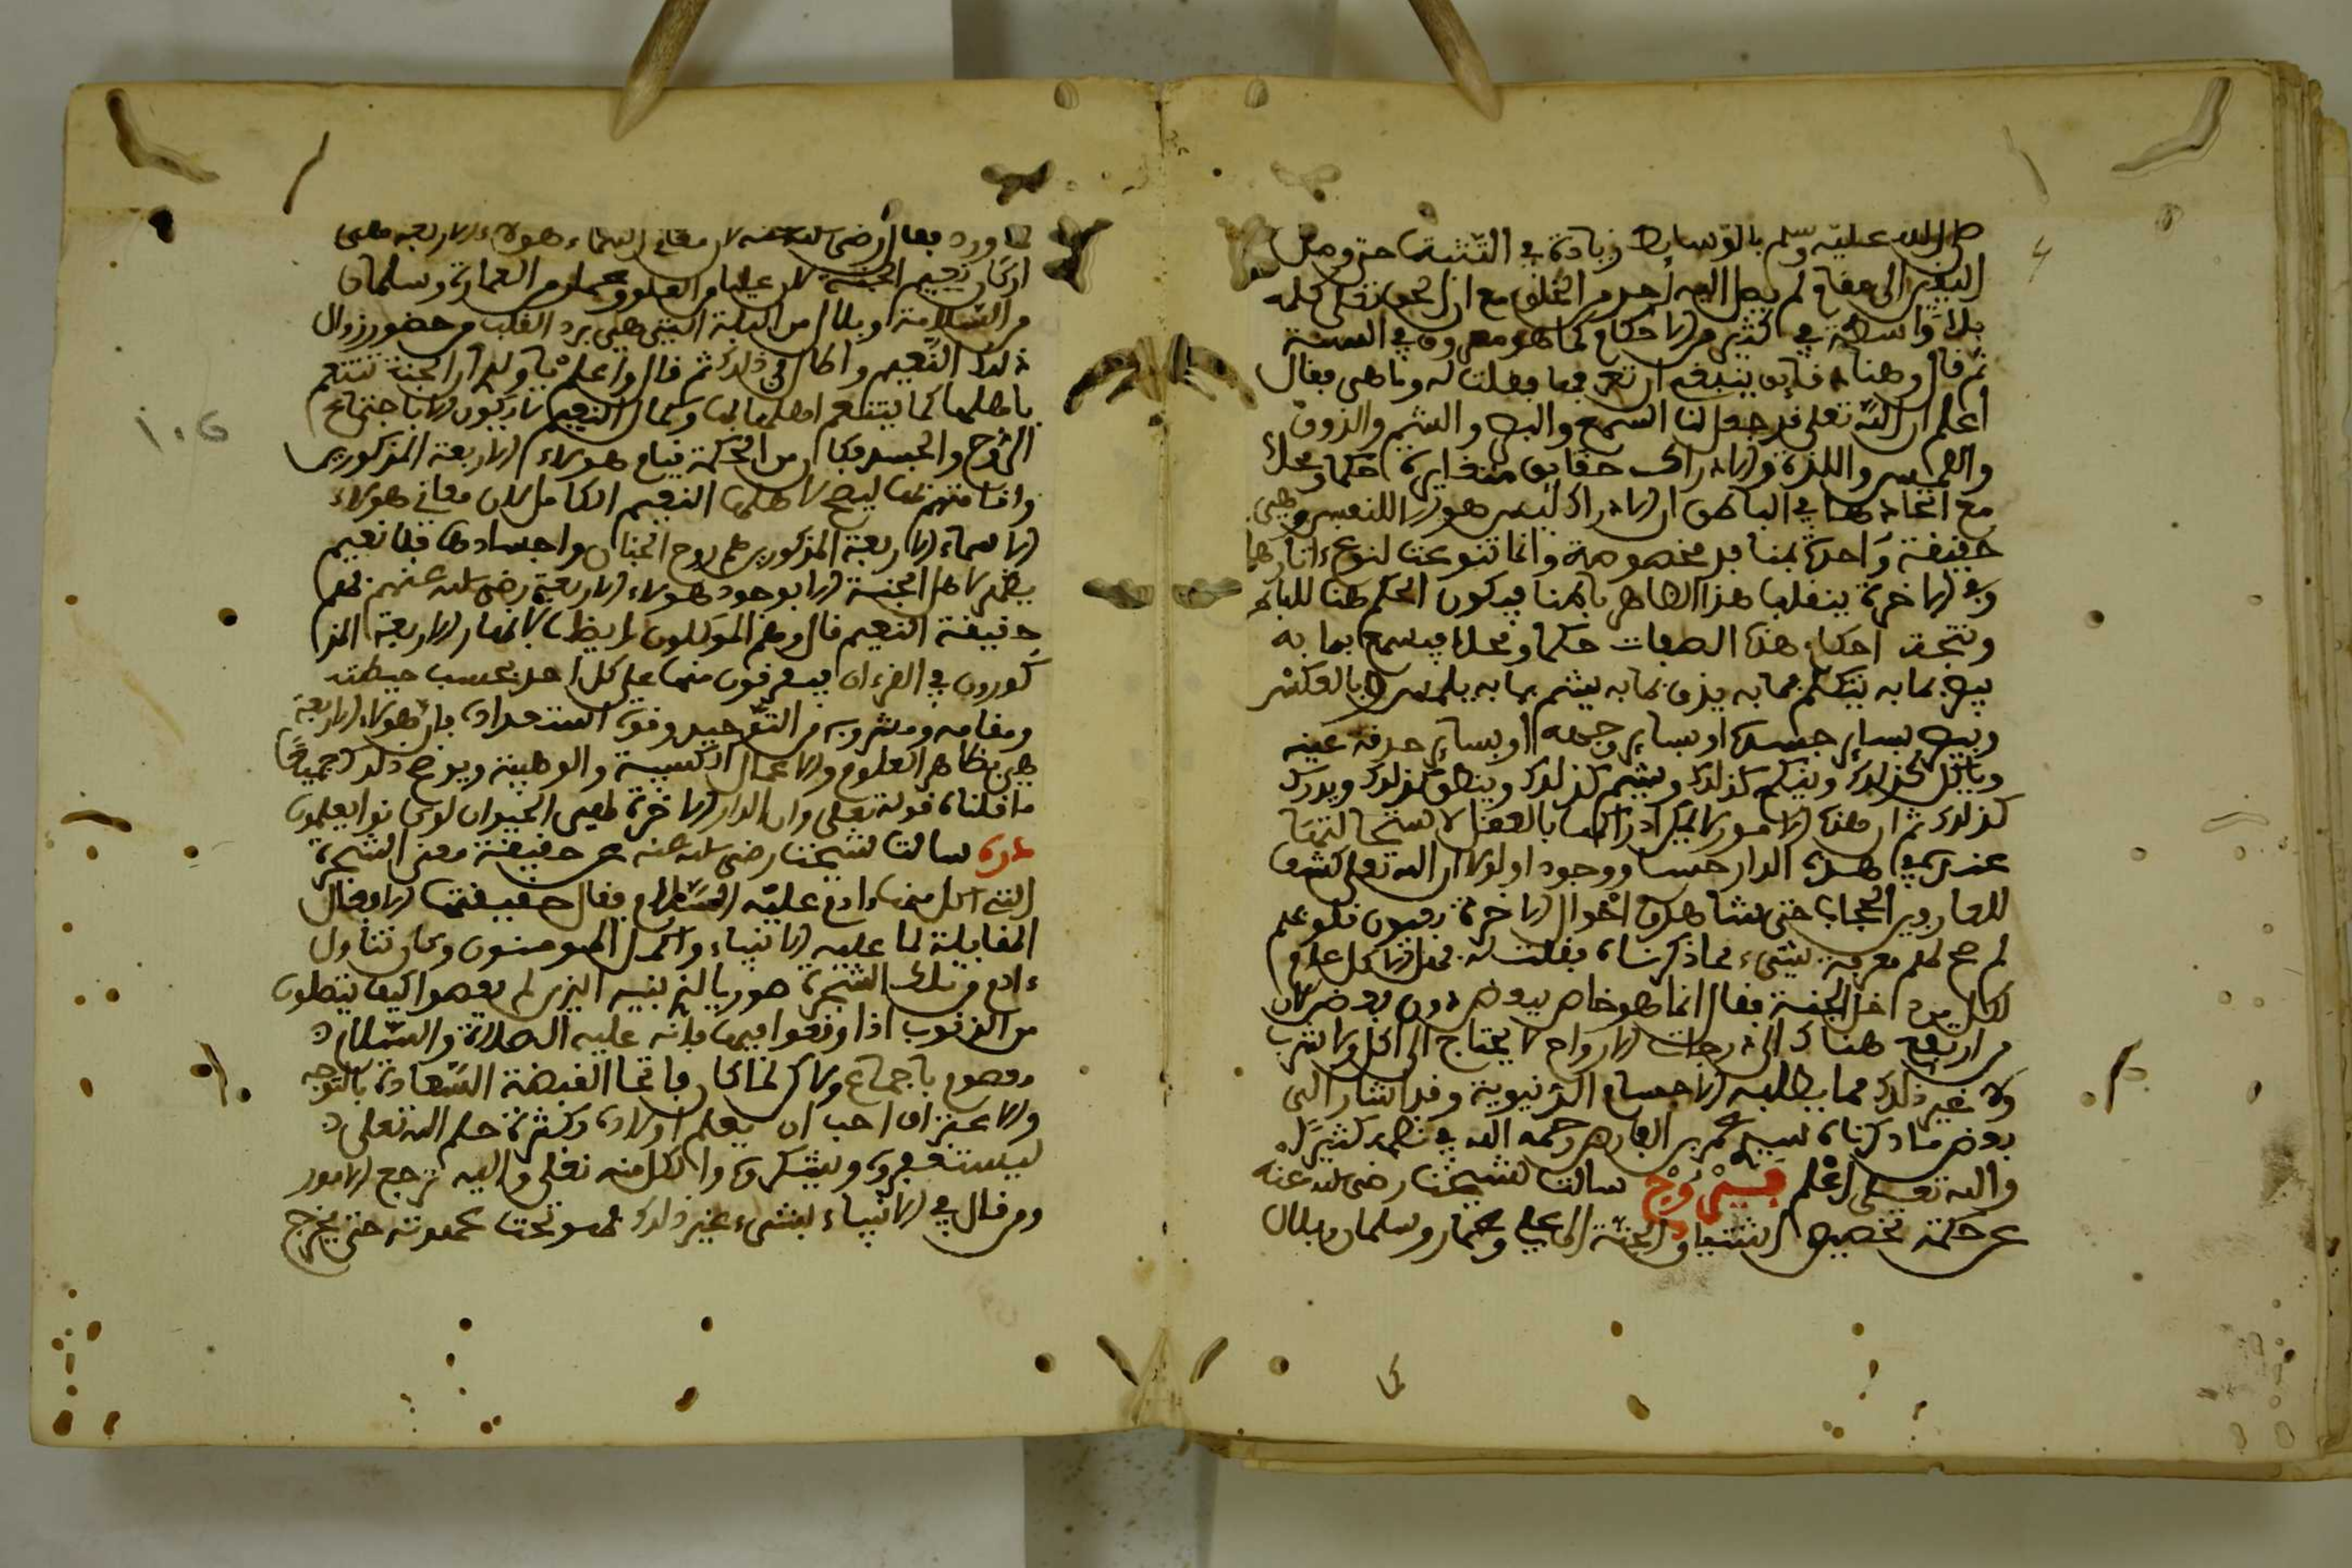 صلى الله عليه وسلم بالوسايط زيادة في التثبت حتى وصل
البعير الى مقام لم يصل اليه احد من الخلق مع ان الحق تعلى كلمه
بلا واسطة في كثير من الاحكام كما هو معروف في السنة
ثم قال وهنا دقايق ينبغي ان تعرفها فقلت له وما هي فقال
اعلم ان الله تعلى قد جعل لنا السمع والبصر والشم والذوق
واللمس واللذة والادراك حقايق متغايرة حكما ومحلا
مع اتحادها في الباطن اذ الادراك ليس هو الا للنفس وهي
حقيقة واحدة بمنافذ مخصوصة وانما تنوعت لنوع ءاثارها
وفي الاخرة ينقلب هذا الظاهر باطنا فيكون الحكم هنا للباطن
وتتحد احكام هذه الصفات حكما ومحلا فيسمع بما به
يبصر بما به يتكلم بما به يذوق بما به يشم بما به يلمس وبالعكس
ويبصر بساير جسده او بساير وجهه او بساير حدقة عينه
وياكل كذلك ويتكلم كذلك ويشم كذلك وينطق كذلك ويدرك
كذلك ثم ان هذه الامور لا يمكن ادراكها بالعقل لاستحالتها
عنده في هذه الدار حسا ووجودا ولولا ان الله تعلى كشف
للعارفين الحجاب حتى شاهدوا احوال الاخرة بعيون قلوبهم
لم صح لهم معرفة بشيء مما ذكرناه فقلت له فهل الاكل عام
لكل من دخل الجنة فقال انما هو خاص ببعض دون بعض لان
من ارتفع هناك الى درجات الارواح لا يحتاج الى اكل ولا شرب
ولا غير ذلك مما يطلبه الاجسام الدنيوية وقد اشار الى
بعض ما ذكرناه سيدي عمر بن الفارض رحمه الله في نظمه كثيرا
والله تعلى اعلم فيروزج سالت شيخنا رضي الله عنه
عن حكمة تخصيص اشتياق الجنة الى علي وعمار وسلمان وبلال
كما ورد فقال رضي الله عنه لان معاني اسماء هولاء الاربعة هي
اركان نعيم الجنة لان عليا من العلو وعمار من العمارة وسلمان
من السلامة وبلال من البلة التي هي برد القلب من حضور زوال
ذلك النعيم واطال في ذلك ثم قال واعلم يا ولدي ان الجنة تتنعم
باهلها كما يتنعم اهلها بها وكمال النعيم لا يكون الا باجتماع
الروح والجسد فكان من الحكمة قيام هولاء الاربعة المذكورين
واقامتهم بها ليصح لاهلها النعيم الكامل لان معاني هولاء
الاسماء الاربعة المذكورين هم روح الجنان واجسادها فلا نعيم
يظهر لاهل الجنة الا بوجود هولاء الاربعة رضي الله عنهم فهم
حقيقة النعيم قال وهم الموكلون ايضا بالانهار الاربعة المذ
كورون في القرءان فيغرفون منها على كل احد بحسب حيطته
ومقامه ومشروبه من التوحيد وقوة استعداده فان هولاء الاربعة
هي مظاهر العلوم والاعمال الكسبية والوهبية ويوضح ذلك جميع
ما قلناه قوله تعلى وان الدار الاخرة لهي الحيوان لو كانوا يعلمون
درة سالت شيخنا رضي الله عنه عن حقيقة معنى الشجرة
التي اكل منها ءادم عليه السلام فقال حقيقتها الافعال
المقابلة لما عليه الانبياء وكمل المومنون وكان تناول
ءادم من تلك الشجرة صوريا ليرى بنيه الذين لم يعصموا كيف ينتصلون
من الذنوب اذا وقعوا فيها فانه عليه الصلاة والسلام
معصوم باجماع ولاكن لما كان فاتحا لقبضة السعادة بالتوجه
والاعتراف احب ان يعلم اولاده بكثرة حلم الله تعلى
ليستغفروه ويشكروه والكل منه تعلى واليه ترجع الامور
ومن قال في الانبياء بشيء غير ذلك فهو تحت عهدته حتى يخرج